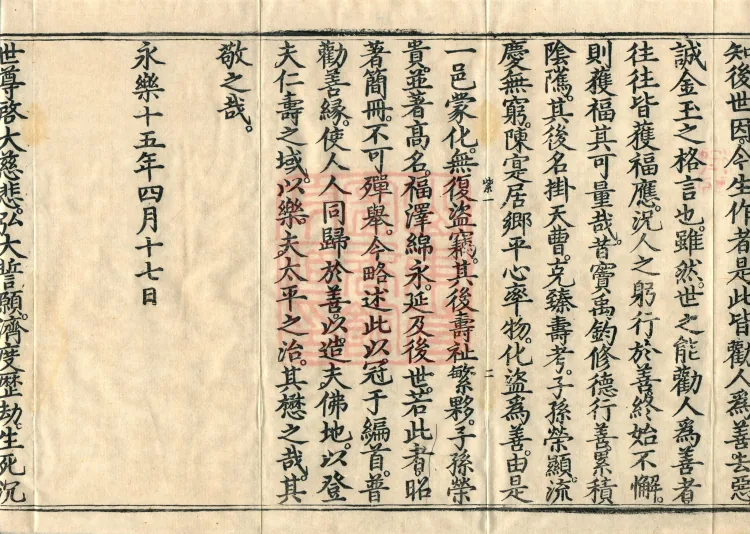 知後世因。今生作者是。此皆勸人為善去惡
誠金玉之格言也。雖然。世之能勸人為善者
往往皆獲福應。況人之躬行於善。終始不懈。
則獲福其可量哉。昔竇禹鈞修德行善。累積
陰隲。其後名掛天曹。克臻壽考。子孫榮顯。流
慶無窮。陳寔居鄉。平心率物。化盜為善。由是
紫一
二
一邑蒙化。無復盜竊。其後壽祉繁夥。子孫榮
貴。並著高名。福澤綿永。延及後世。若此者。昭
著簡冊。不可殫舉。今略述此。以冠于編首。普
勸善緣。使人人同歸於善。以造夫佛地。以登
夫仁壽之域。以樂夫太平之治。其懋之哉。其
敬之哉。
永樂十五年四月十七日
世尊啓大慈悲。弘大誓願。濟度歷劫。生死沉